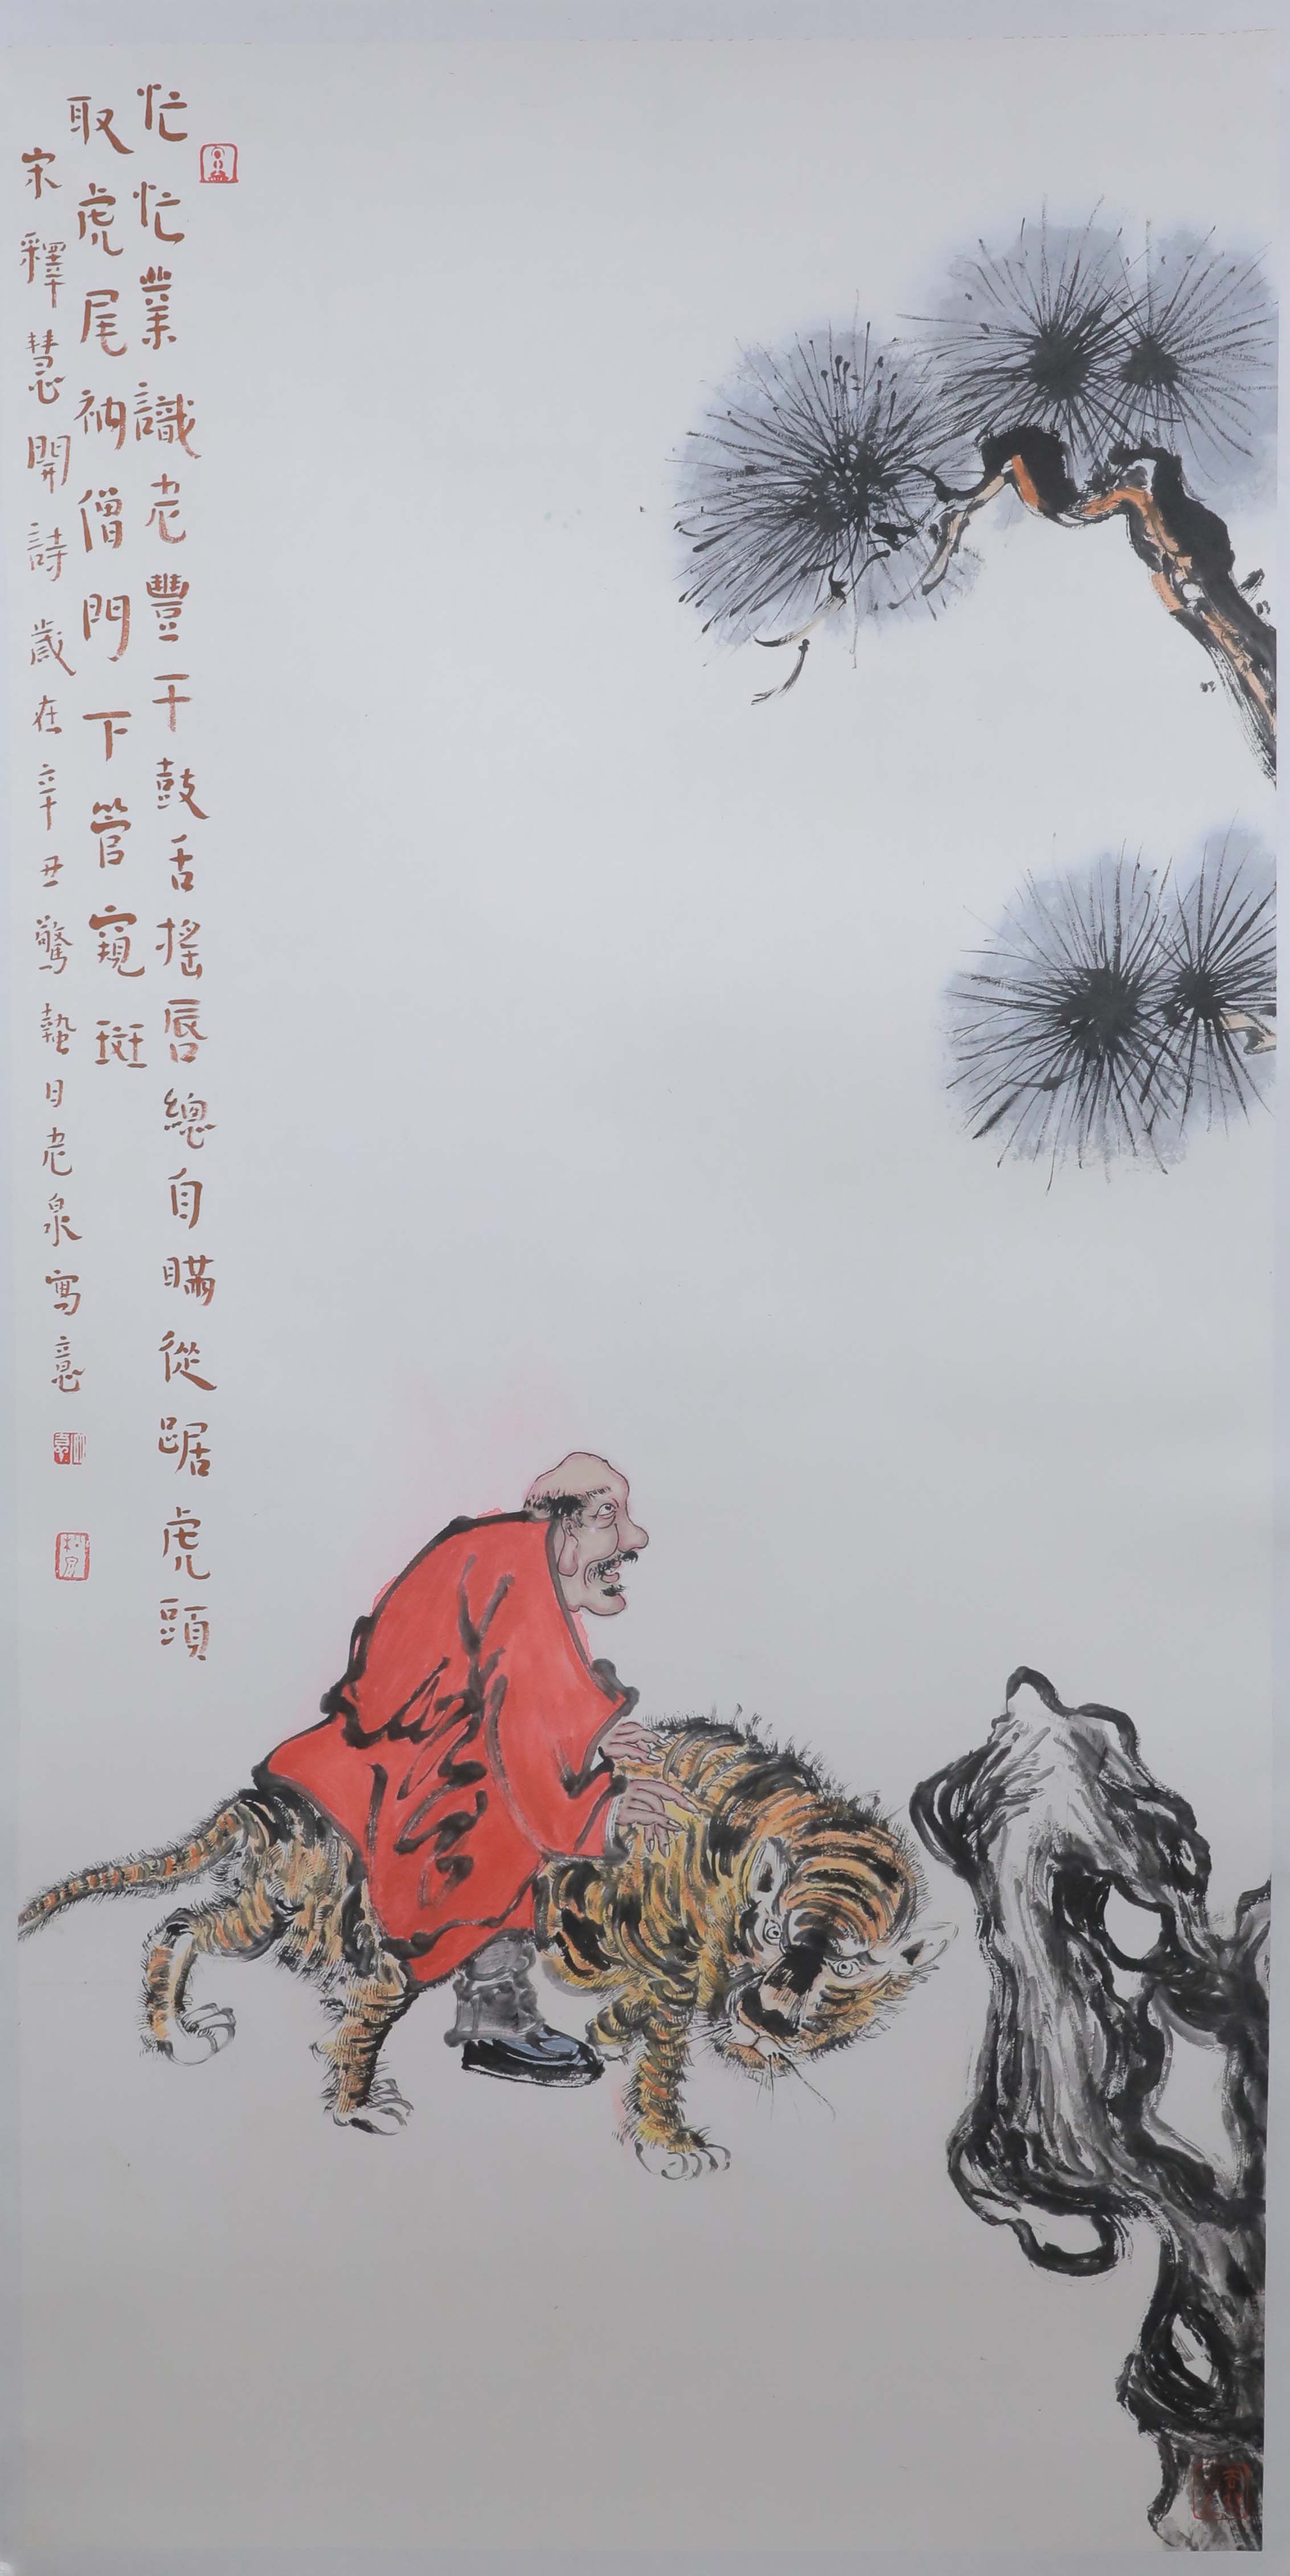 忙忙業識老豐干鼓舌搖唇總自瞞從踞虎頭
取虎尾衲僧門下管窺斑
宋釋慧開詩歲在辛丑驚蟄日老泉寫意